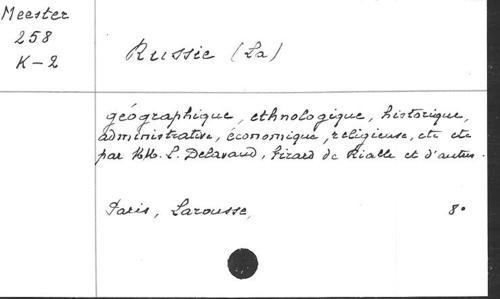 Meester
258
K-2
Russie (La)
géographique, ethnologique, historique,
administrative, économique, religieuse, etc etc
par MM. L. Delavaud, Girard de Rialle et d'autres.
Paris, Larousse,
8°